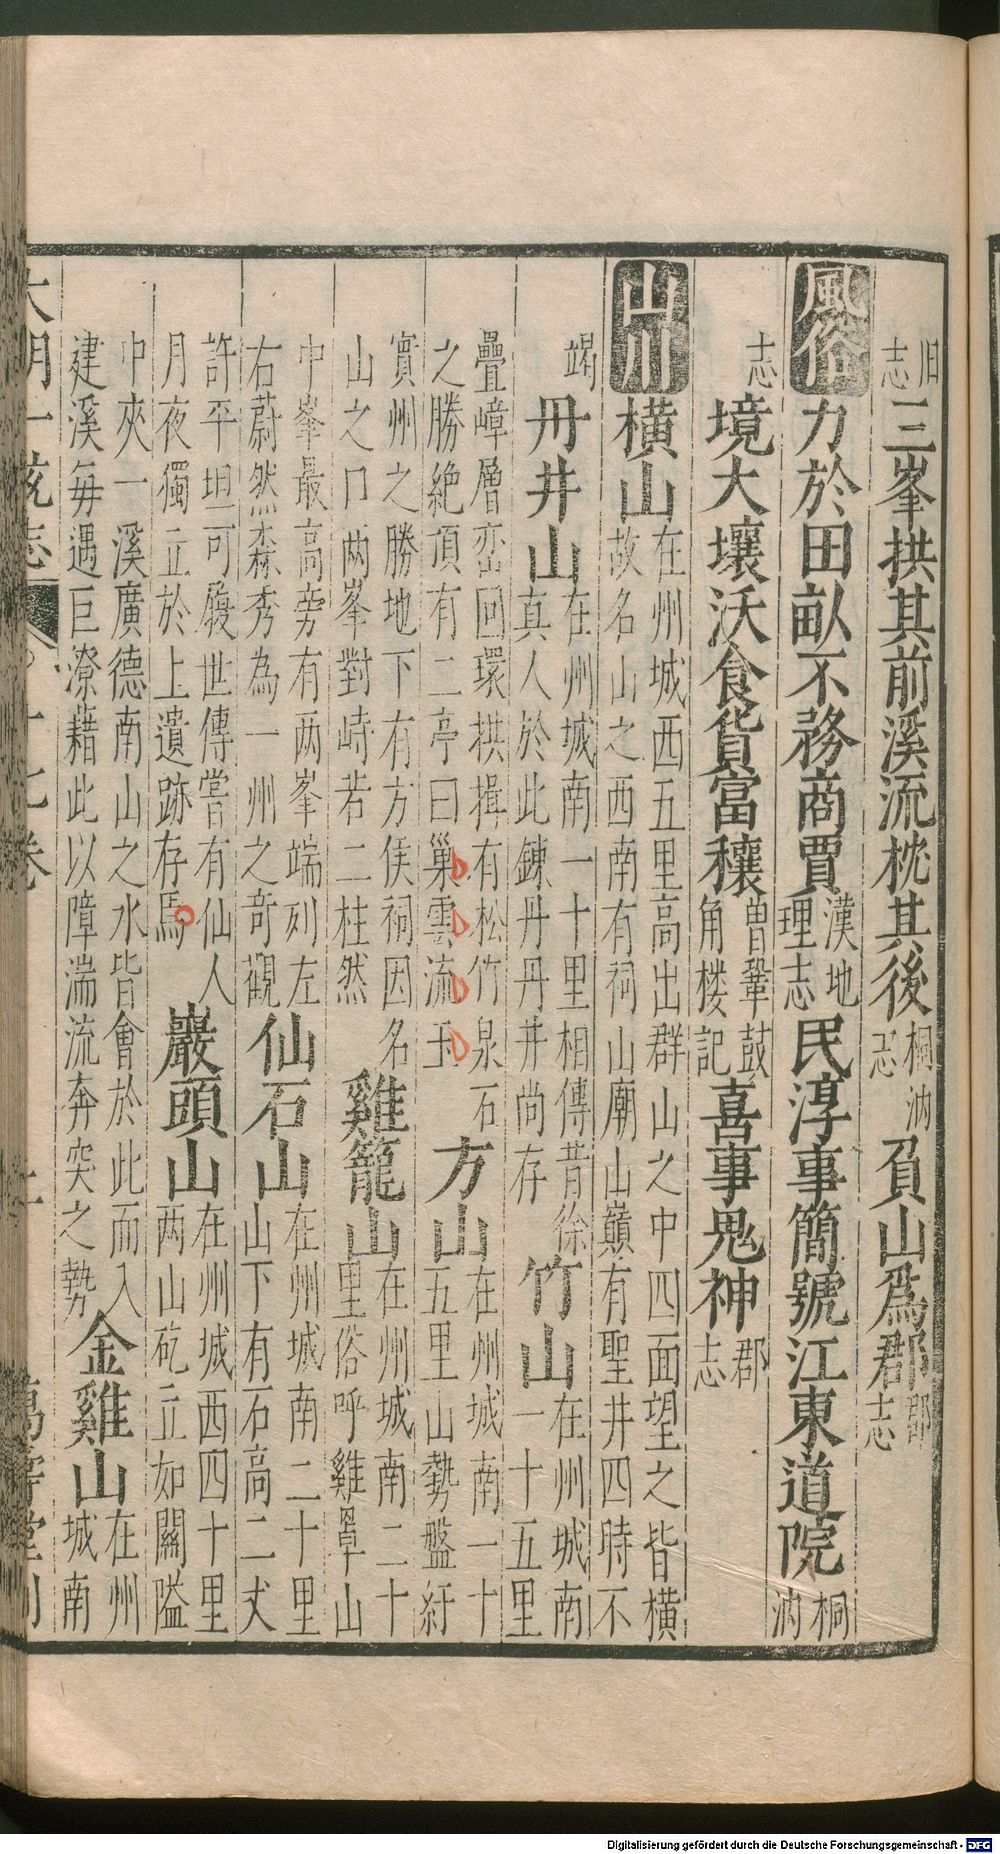 旧志三峯拱其前溪流枕其後桐汭志負山為郡郡志
風俗力於田畝不務商賈漢地理志民淳事簡號江東道院桐汭
志境大壤沃食貨富穰曾鞏鼓角楼記喜事鬼神郡志
山川橫山在州城西五里高出群山之中四面望之皆橫故名山之西南有祠山廟山巔有聖井四時不
竭丹井山在州城南一十里相傳昔徐真人於此鍊丹丹井尚存竹山在州城南一十五里
疊嶂層巒回環拱揖有松竹泉石之勝絶頂有二亭曰巢雲流玉方山在州城南一十五里山勢盤紆
實州之勝地下有方侯祠因名山之口两峯對峙若二柱然雞籠山在州城南二十里俗呼雞罩山
中峯最高旁有两峯端列左右蔚然森秀為一州之奇觀仙石山在州城南二十里山下有石高二丈
許平坦可履世傳嘗有仙人月夜獨立於上遺跡存焉巖頭山在州城西四十里两山矻立如關隘
中夾一溪廣德南山之水皆會於此而入建溪每遇巨潦藉此以障湍流奔突之勢金雞山在州城南
大明一統志 十七卷 萬壽堂刊
Digitalisierung gefördert durch die Deutsche Forschungsgemeinschaft - DFG